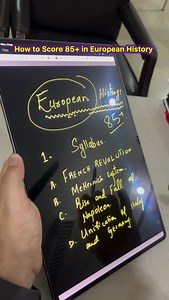 How to Score 85+ in European History
European History
85+
1. Syllabus.
A. FRENCH REVOLUTION
B. Metternich System.
C. Rise and Fall of
Napoleon
D. Unification of Italy
and Germany